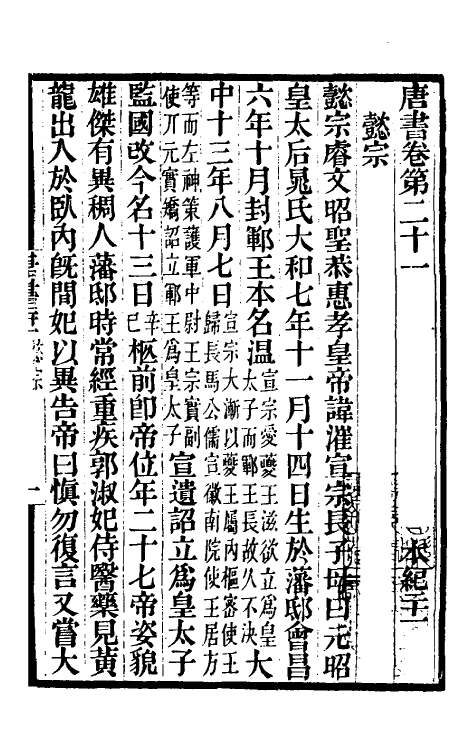 唐書卷第二十一
本紀二十一
懿宗
懿宗睿文昭聖恭惠孝皇帝諱漼宣宗長子母曰元昭
皇太后晁氏大和七年十一月十四日生於藩邸會昌
六年十月封鄆王本名温宣宗愛夔王滋欲立爲皇太子而鄆王長故久不決大
中十三年八月七日宣宗大漸以夔王屬內樞密使王歸長馬公儒宣徽南院使王居方
等而左神策護軍中尉王宗實副使丌元實矯詔立鄆王爲皇太子宣遺詔立爲皇太子
監國改今名十三日辛巳柩前卽帝位年二十七帝姿貌
雄傑有異稠人藩邸時常經重疾郭淑妃侍醫藥見黃
龍出入於臥內旣間妃以異告帝曰愼勿復言又嘗大
懿宗
一